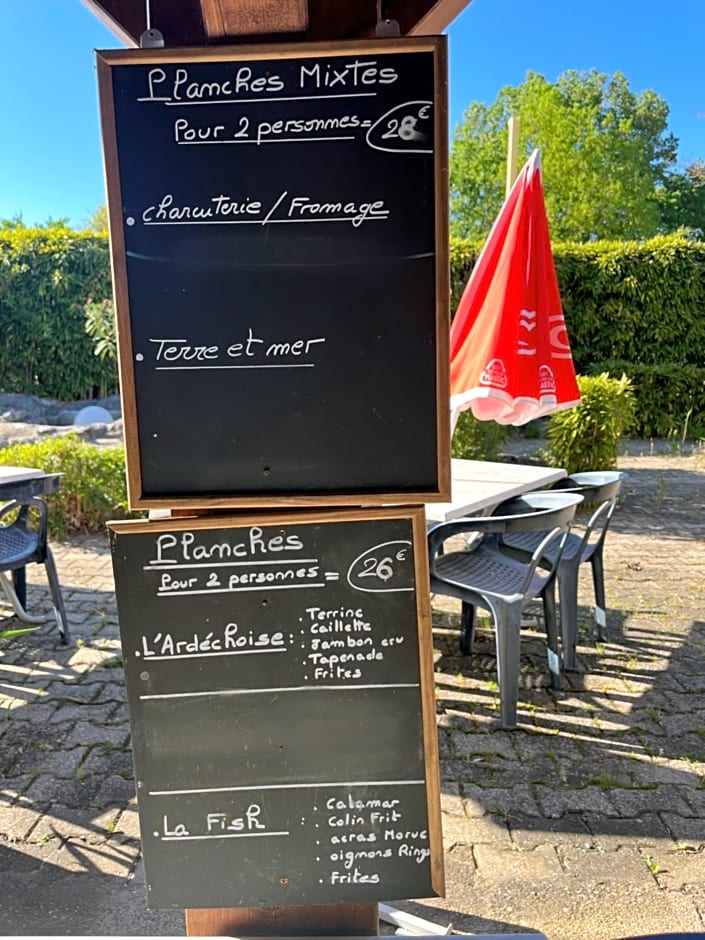 Planches Mixtes
Pour 2 personnes = 28€
• charcuterie / Fromage
• Terre et mer
Planches
Pour 2 personnes = 26€
• L'Ardéchoise : • Terrine
• Caillette
• Jambon cru
• Tapenade
• Frites
• La Fish : • Calamar
• Colin Frit
• acras Morue
• oignons Rings
• Frites